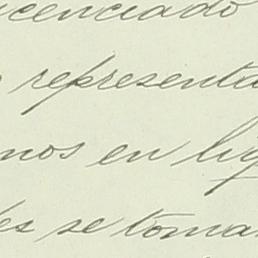 licenciado
representa
nos en lug
les se toma